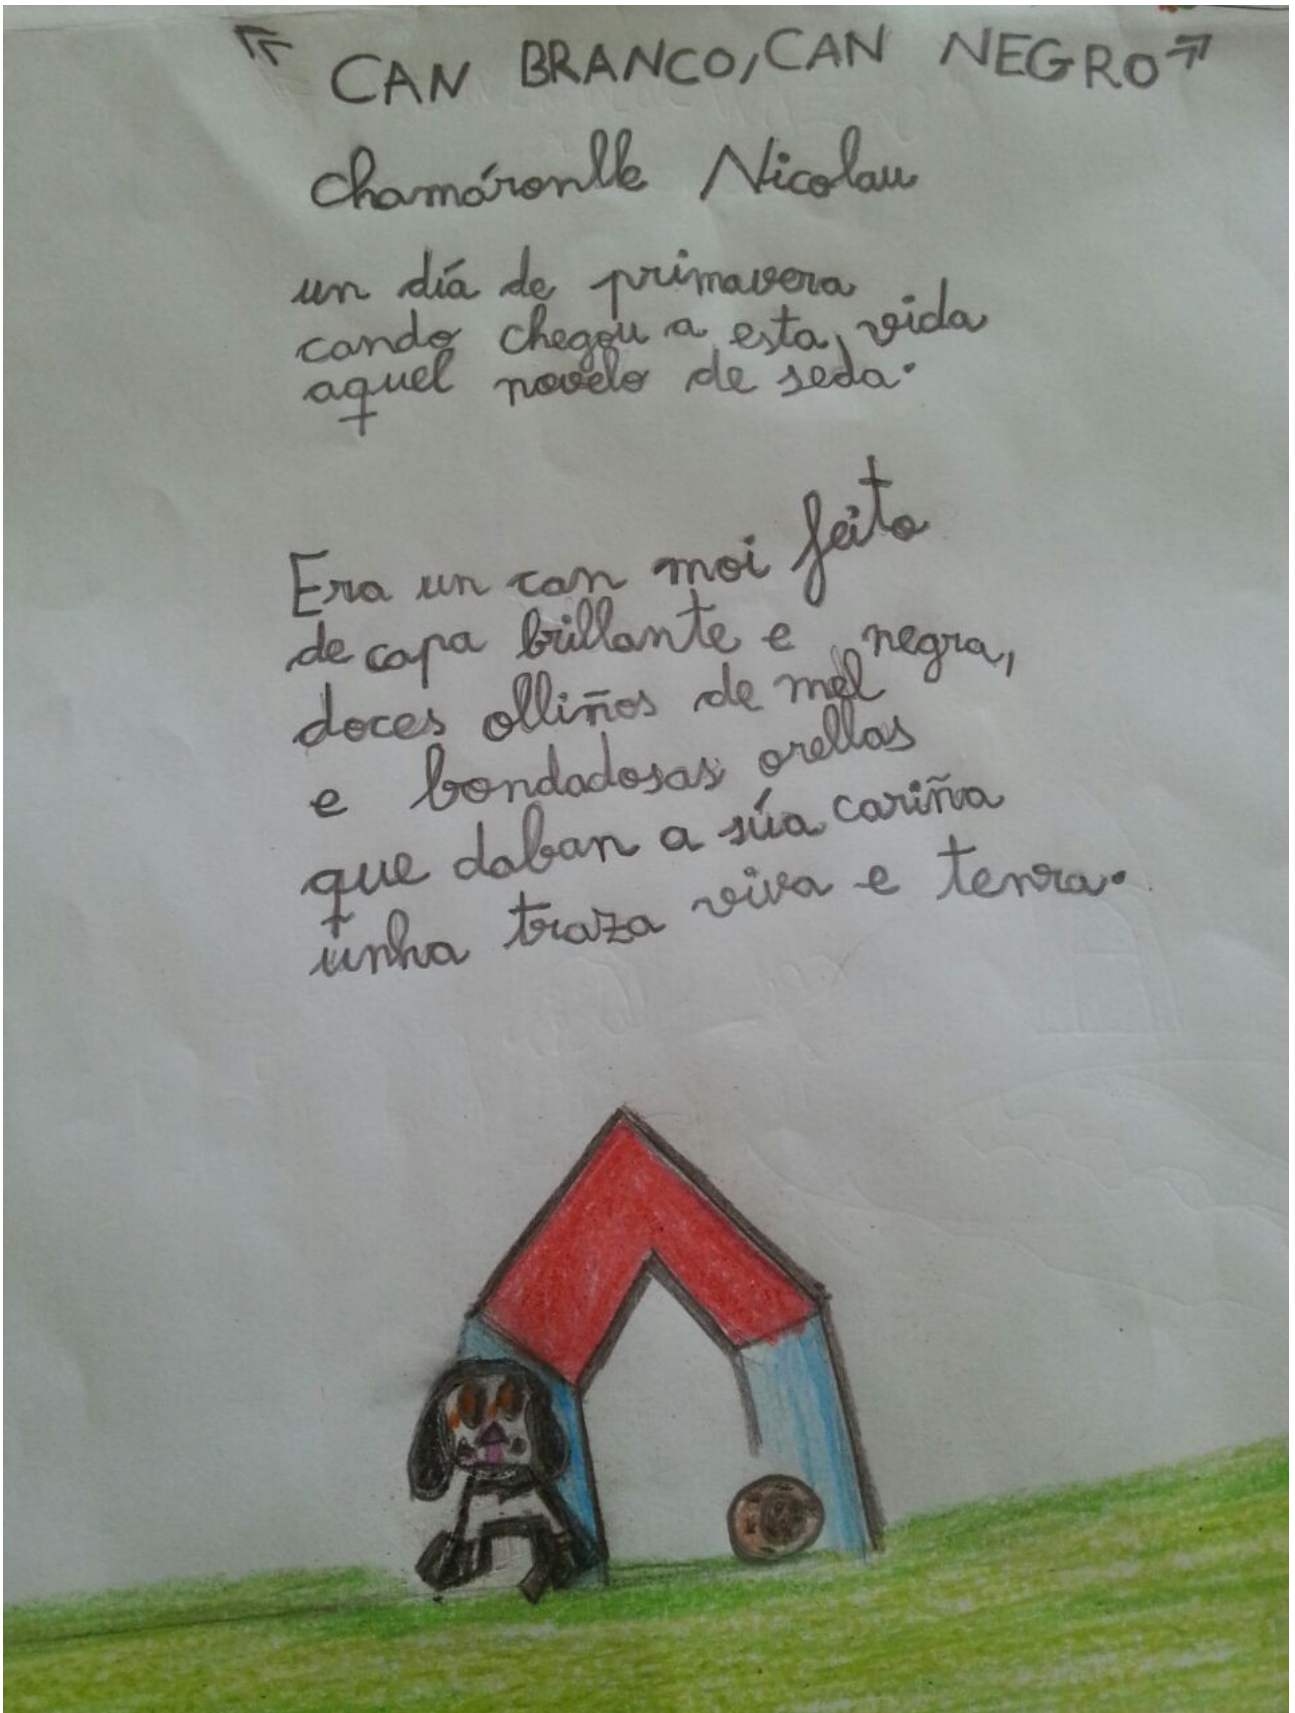 «CAN BRANCO, CAN NEGRO»
Chamáronlle Nicolau
un día de primavera
cando chegou a esta vida
aquel novelo de seda.
Era un can moi feito
de capa brillante e negra,
doces olliños de mel
e bondadosas orellas
que daban a súa cariña
unha traza viva e tenra.